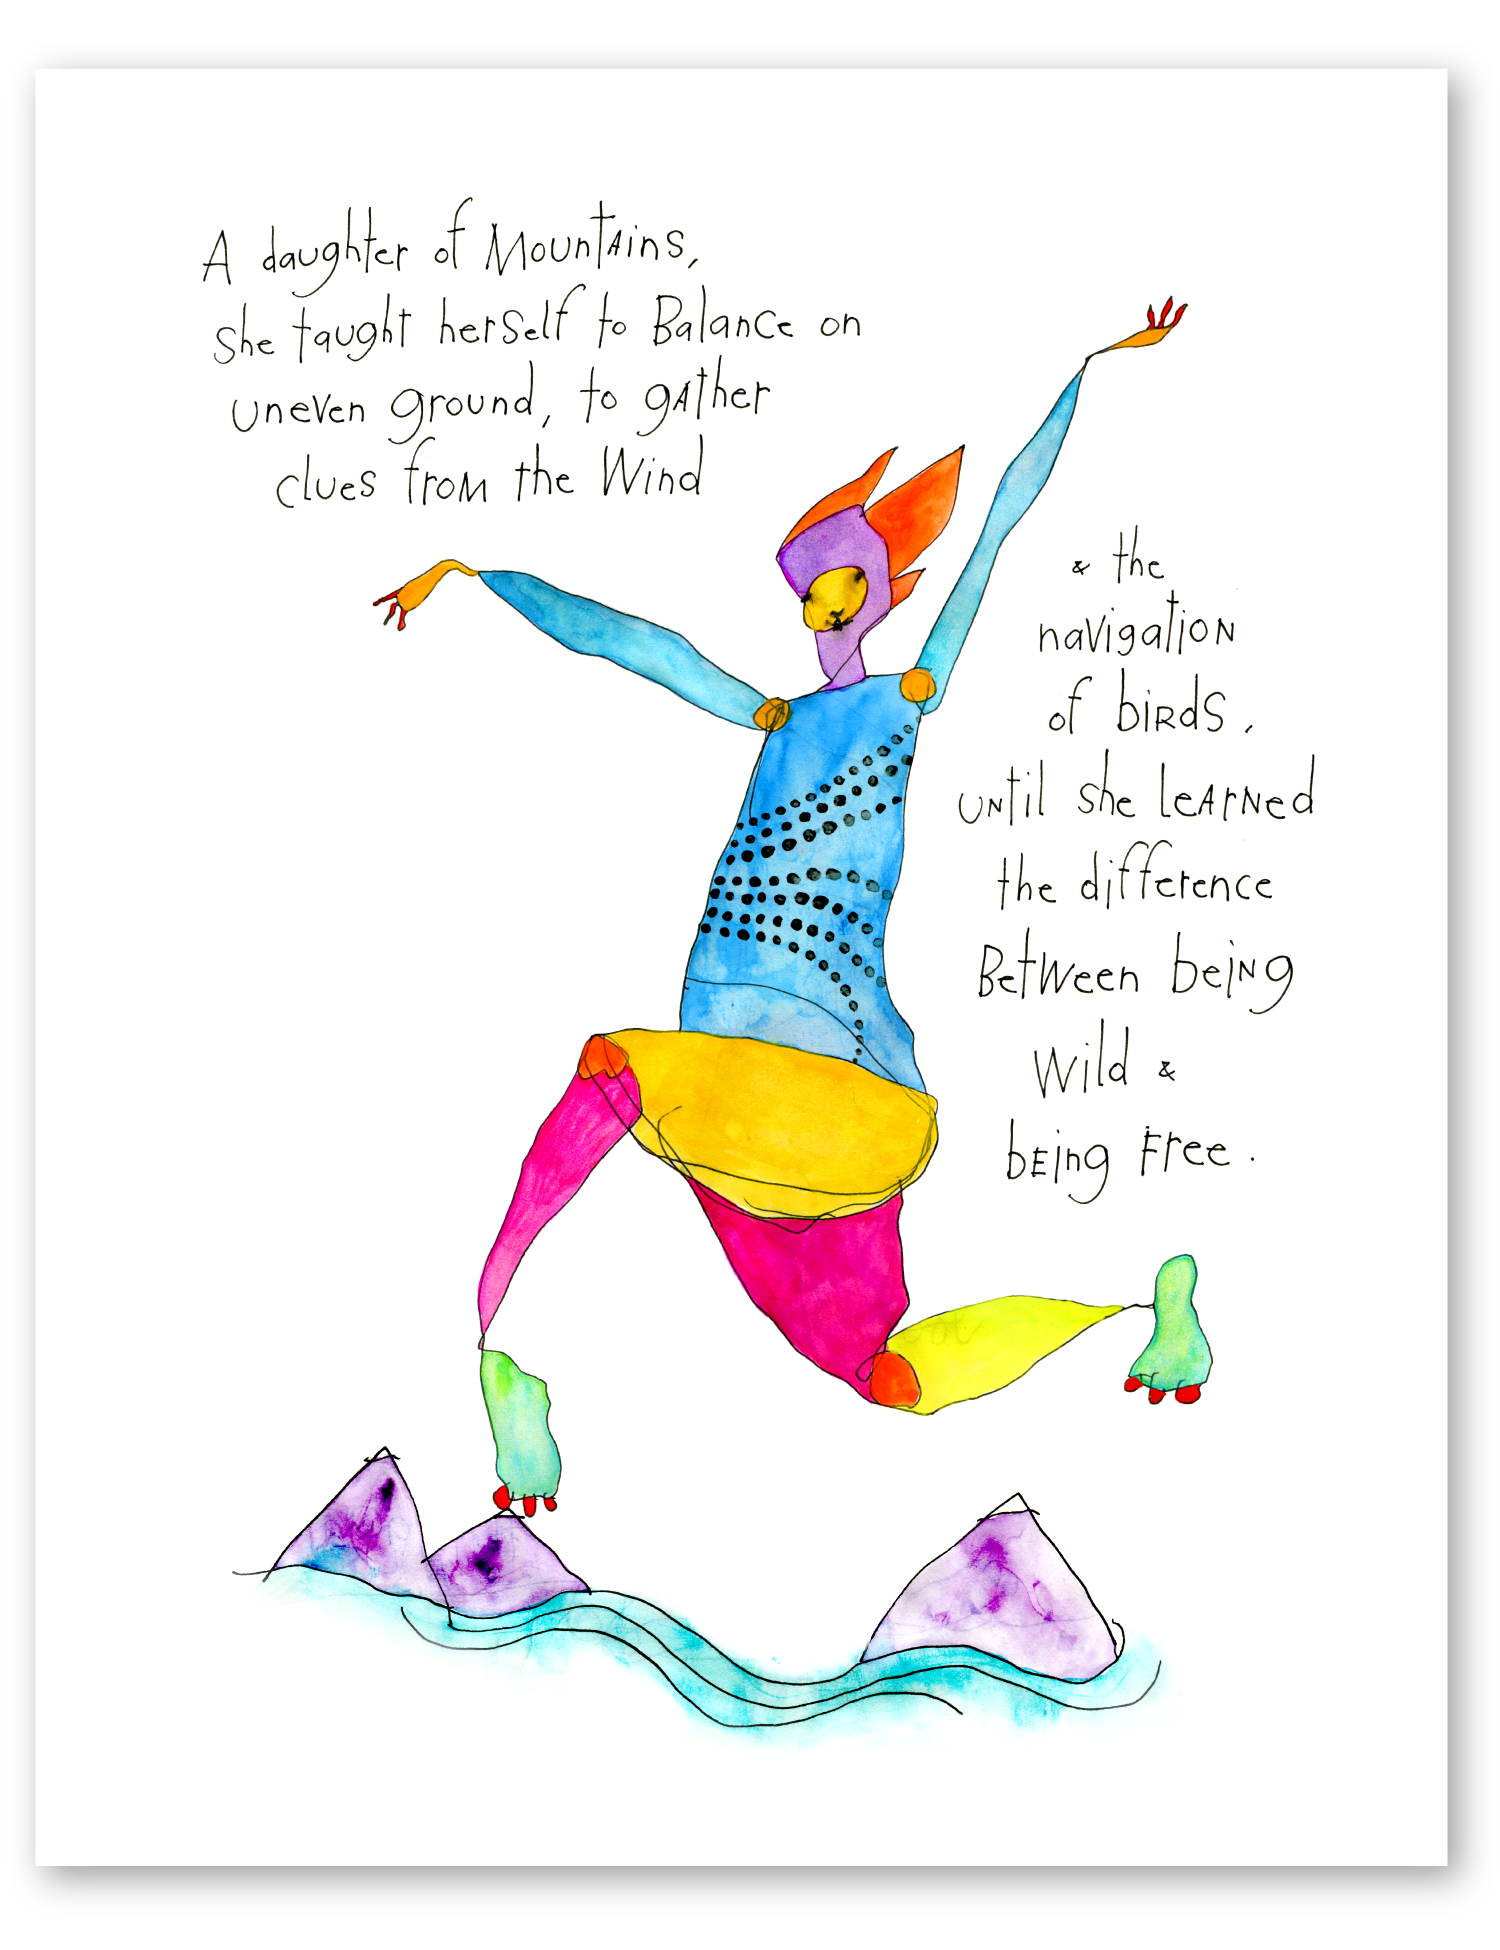 A daughter of Mountains,
she taught herself to Balance on
uneven ground, to gather
clues from the Wind
& the
navigation
of birds,
until she learned
the difference
Between being
Wild &
being Free.